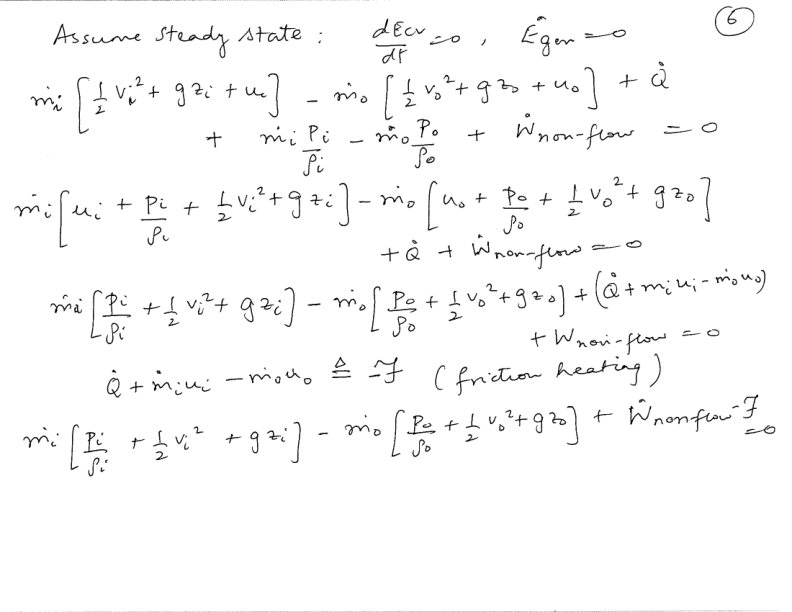 6
Assume steady state : dEcv/dt = 0 , Ėgen = 0
ṁi [ 1/2 vi² + g zi + ui ] − ṁo [ 1/2 vo² + g zo + uo ] + Q̇
+ ṁi Pi/ρi − ṁo Po/ρo + Ẇnon-flow = 0
ṁi [ ui + Pi/ρi + 1/2 vi² + g zi ] − ṁo [ uo + Po/ρo + 1/2 vo² + g zo ]
+ Q̇ + Ẇnon-flow = 0
ṁi [ Pi/ρi + 1/2 vi² + g zi ] − ṁo [ Po/ρo + 1/2 vo² + g zo ] + ( Q̇ + ṁi ui − ṁo uo )
+ Wnon-flow = 0
Q̇ + ṁi ui − ṁo uo ≜ −ℱ ( friction heating )
ṁi [ Pi/ρi + 1/2 vi² + g zi ] − ṁo [ Po/ρo + 1/2 vo² + g zo ] + Ẇnonflow − ℱ
= 0